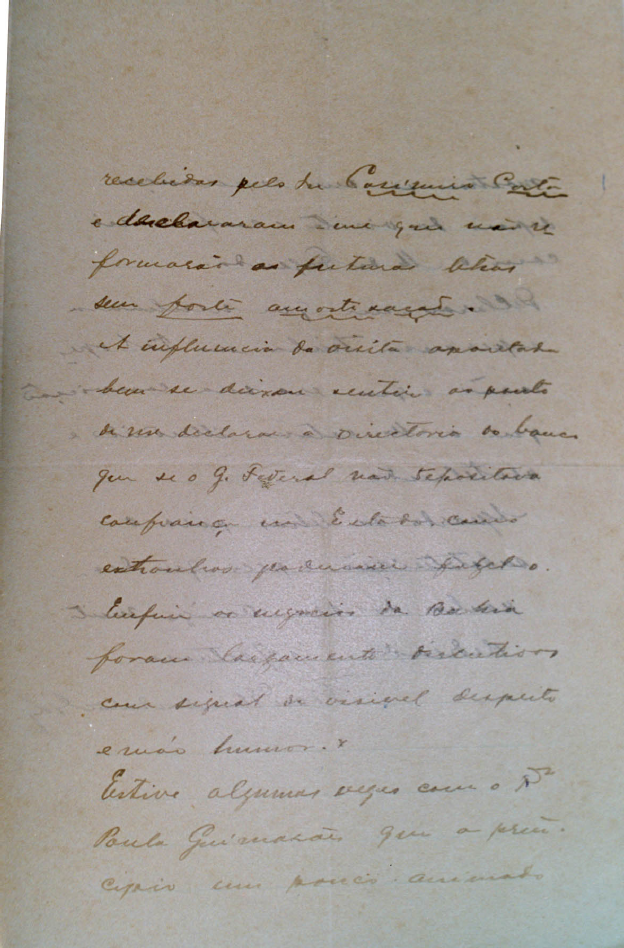 recebidas pelo Sr Casimiro Costa
e declararam-me que não re
formarão as futuras letras
sem forte amortisação.
A influencia da visita apontada
bem se deixou sentir ao ponto
de me declarar a Directoria do banco
que se o G. Federal não depositava
confiança no Estado como
extranhos poderiam fazel-o.
Emfim os negocios da Bahia
foram largamente discutidos
com signal de visivel despeito
e máo humor.
Estive algumas vezes com o Dr
Paula Guimarães que a prin-
cipio um pouco animado